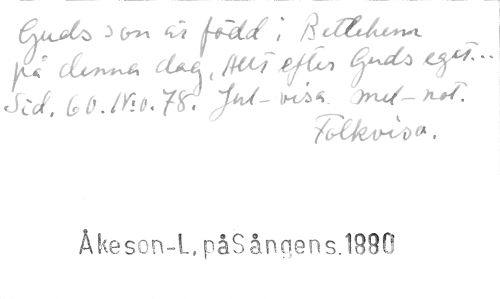 Guds son är född i Betlehem
på denna dag, Allt efter Guds eget...
Sid. 60. No. 78. Jul-visa. mel-not.
Folkvisa.
Åkeson-L, påSångens.1880